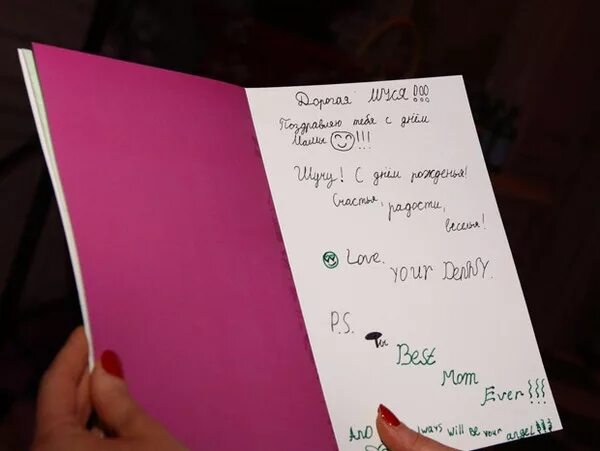 Дорогая Муся!!!
Поздравляю тебя с днём
Мамы !!!
Шучу! С днём рожденья!
Счастья, радости,
веселья!
Love,
Your Denny.
P.S.
Ты
Best
Mom
Ever!!!
And always will be your angel!!!